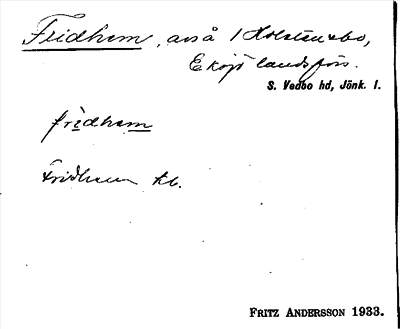 Fridhem, avs å 1 Holstensbo,
Eksjö landsförs.
S. Vedbo hd, Jönk. l.
fridhem
Fridhem kb.
FRITZ ANDERSSON 1933.